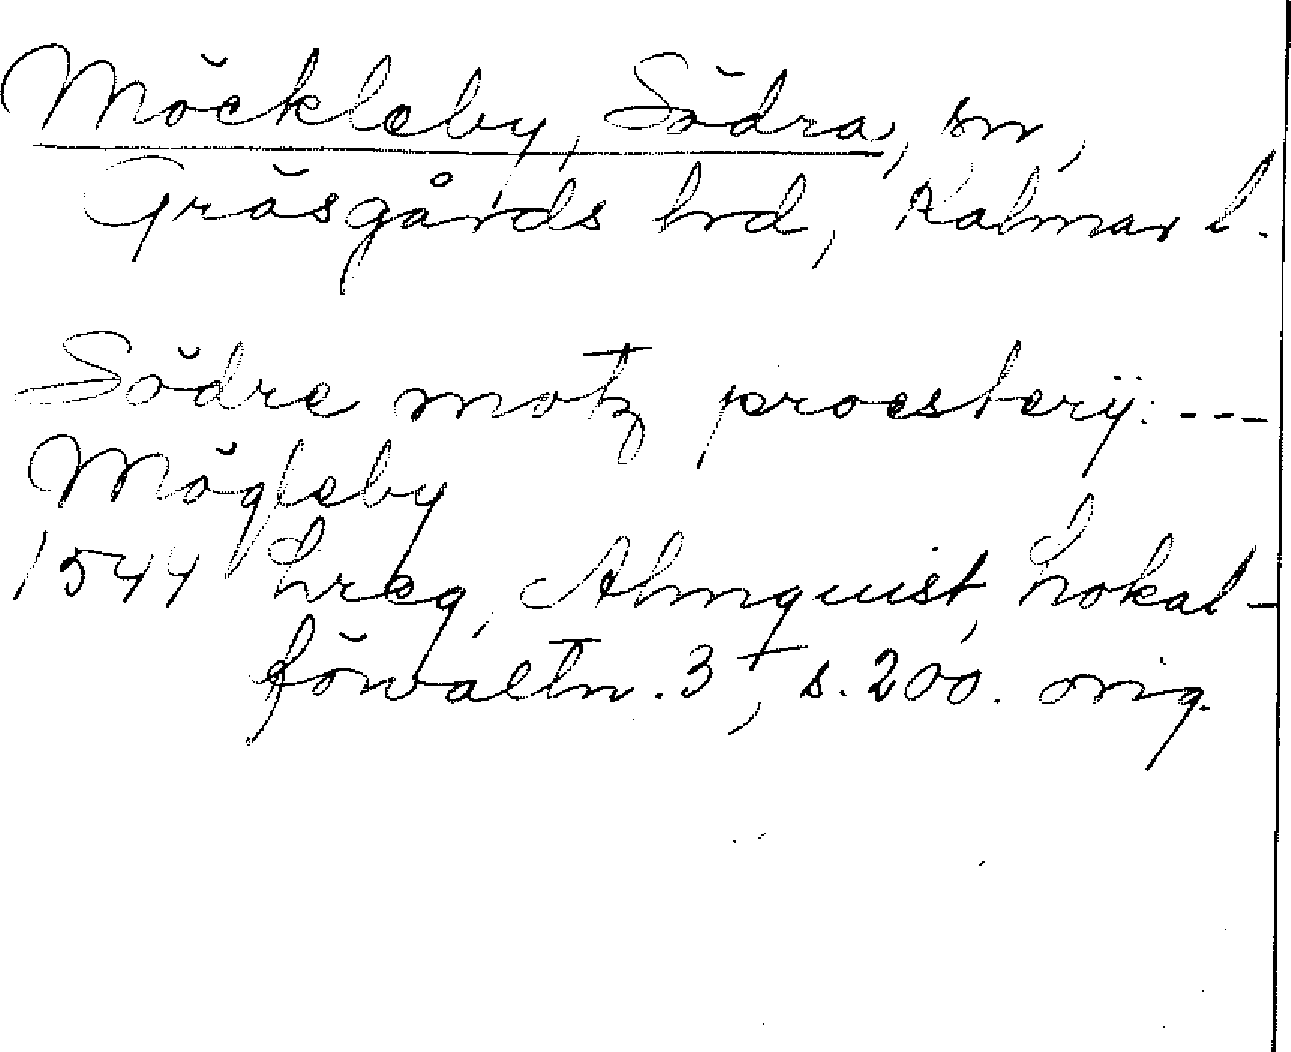 Möckleby, Södra, sn,
Gräsgårds hrd, Kalmar l.
Södre motz proesterÿ: ---
Mögleby
1544 Lreg, Almquist, Lokal-
förvaltn. 3, s. 200. orig.